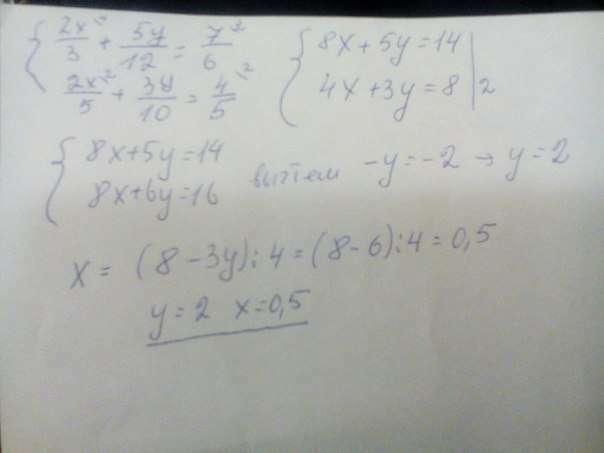 { 2x/3 + 5y/12 = 7/6 { 8x+5y=14
2x/5 + 3y/10 = 4/5 4x+3y=8 | 2
{ 8x+5y=14
8x+6y=16 вычтем -y=-2 → y=2
x= (8-3y):4=(8-6):4=0,5
y=2 x=0,5